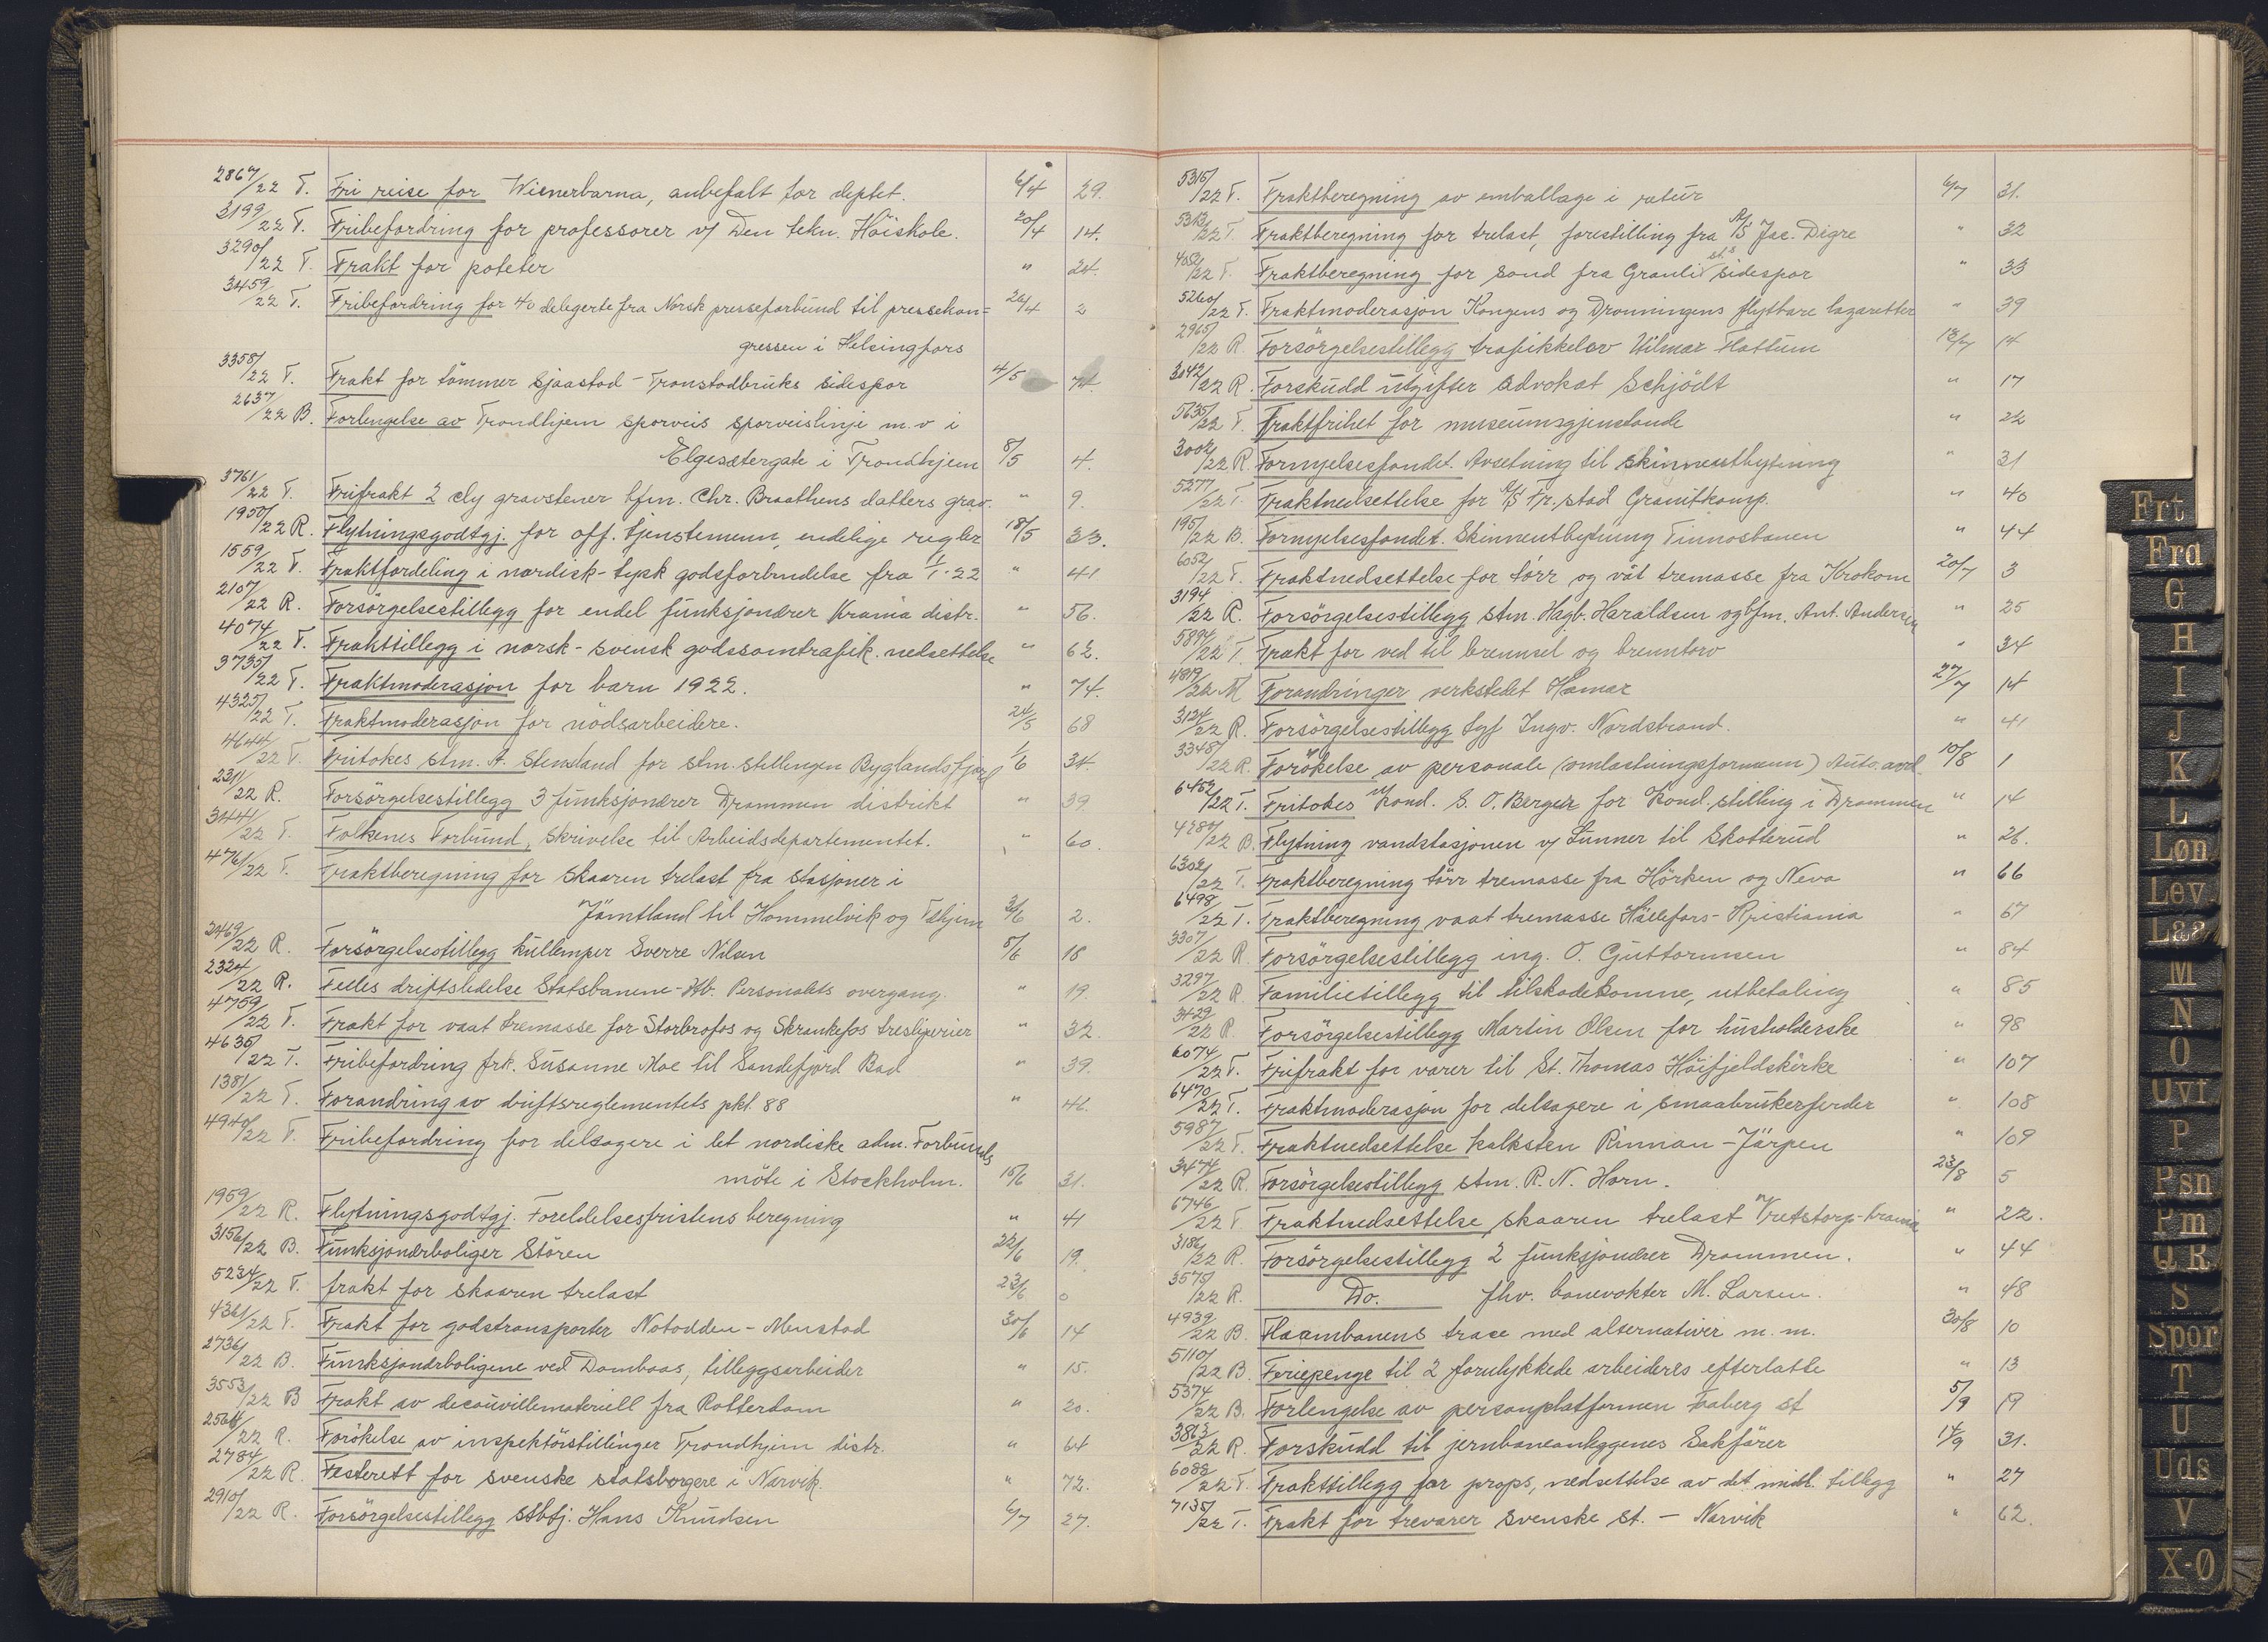 2867/22 T. Fri reise for Wienerbarna, anbefalt for deptet. 6/4 29.
3199/22 T. Fribefordring for professorer v/ Den tekn. Höiskole. 20/4 14.
3290/22 T. Frakt for poteter " 24.
3459/22 T. Fribefordring for 40 delegerte fra Norsk presseforbund til pressekon= 26/4 2
gressen i Helsingfors
3358/22 T. Frakt for tömmer Sjaastad - Tronstadbruks sidespor 4/5 74.
2637/22 B. Forlengelse av Trondhjem sporveis sporveislinje m.v i
Elgesætergate i Trondhjem 8/5 4.
3761/22 T. Frifrakt 2 cly gravstener bfm. Chr. Braathens datters grav. " 9.
1950/22 R. Flytningsgodtgj. for off. tjenstemenn, endelige regler 18/5 33.
1559/22 T. Fraktfordeling i nordisk-tysk godsforbindelse fra 1/1-22 " 41
2107/22 R. Forsörgelsestillegg for endel funksjonærer Krania distr. " 56.
4074/22 T. Frakttillegg i norsk-svensk godssamtrafik. nedsettelse " 62.
3735/22 T. Fraktmoderasjon for barn 1922. " 74.
4325/22 T. Fraktmoderasjon for nödsarbeidere. 24/5 68
4644/22 T. Fritokes stm. A. Stensland for stm. stillingen Byglandsfjord 1/6 34.
2311/22 R. Forsörgelsestillegg 3 funksjonærer Drammen distrikt " 39
3441/22 T. Folkenes Forbund, skrivelse til Arbeidsdepartementet. " 60.
4761/22 T. Fraktberegning for skaaren trelast fra stasjoner i
Jämtland til Hommelvik og T.hjem 3/6 2.
2469/22 R. Forsörgelsestillegg kullemper Sverre Nilsen 8/6 18
2324/22 R. Felles driftsledelse Statsbanene-Hb. Personalets overgang. " 19.
4759/22 T. Frakt for vaat tremasse for Storbrofos og Skrankefos tresliperier " 32
4635/22 T. Fribefordring frk. Susanne Moe til Sandefjord Bad " 39.
1381/22 T. Forandring av driftsreglementets pkt. 88 " 46.
4940/22 T. Fribefordring for deltagere i det nordiske adm. Forbunds
möte i Stockholm. 15/6 31.
1959/22 R. Flytningsgodtgj. Foreldelsesfristens beregning " 41
3156/22 B. Funksjonærboliger Stören 22/6 19.
5234/22 T. frakt for skaaren trelast 23/6 0
4361/22 T. Frakt for godstransporter Notodden - Menstad 30/6 14
2736/22 B. Funksjonærboligene ved Dombaas, tilleggsarbeider " 15.
3553/22 B Frakt av decauvillemateriell fra Rotterdam " 20.
2564/22 R. Forökelse av inspektörstillinger Trondhjem distr. " 64
2784/22 R. Festerett for svenske statsborgere i Narvik. " 72.
2910/22 R. Forsörgelsestillegg stbtj: Hans Knudsen 6/7 27.
5315/22 T. Fraktberegning av emballage i retur 6/7 31.
5313/22 T. Fraktberegning for trelast, forestilling fra A/S Jac. Digre " 32
4052/22 T. Fraktberegning for sand fra Granli st.s sidespor " 33
5260/22 T. Fraktmoderasjon Kongens og Dronningens flytbare lazaretter " 39
2965/22 R Forsörgelsestillegg trafikkelev Hilmar Flattum 13/7 14
3042/22 R. Forskudd utgifter advokat Schjödt " 17
5635/22 T. Fraktfrihet for museumsgjenstande " 22
3002/22 R. Fornyelsesfondet. Avsetning til skinneutbytning " 31
5277/22 T. Fraktnedsettelse for A/S Fr.stad Granitkomp. " 40
1951/22 B. Fornyelsesfondet. Skinneutbytning Tinnosbanen " 44
6052/22 T. Fraktnedsettelse for törr og våt tremasse fra Krokom 20/7 3
3194/22 R. Forsörgelsestillegg stm. Hagb. Haraldsen og bfm. Ant. Andersen " 25
5894/22 T. Frakt for ved til brennsel og brenntorv " 34
4819/22 M Forandringer verkstedet Hamar 27/7 14
3124/22 R. Forsörgelsestillegg tgf Ingv. Nordstrand. " 41
3348/22 R. Forökelse av personale (omlastningsformenn) Auto. avd. 10/8 1
6452/22 T. Fritokes Kond. S. O. Berger for Kond. stilling i Drammen " 14
4287/22 B. Flytning vandstasjonen v/ Lunner til Skotterud " 26.
6302/22 T. Fraktberegning törr tremasse fra Hörken og Neva " 66
6498/22 T. Fraktberegning vaat tremasse Hällefors - Kristiania " 67
3307/22 R. Forsörgelsestillegg ing. O. Guttormsen " 84
3297/22 R. Familietillegg til tilskadekomne, utbetaling " 85
3429/22 R. Forsörgelsestillegg Martin Olsen for husholderske " 98
6074/22 T. Frifrakt for varer til St. Thomas Höifjeldskirke " 107
6470/22 T. Fraktmoderasjon for deltagere i smaabrukerferder " 108
5987/22 T. Fraktnedsettelse kalksten Rinnan - Järpen " 109
3474/22 R. Forsörgelsestillegg stm. R. N. Horn. 23/8 5
6746/22 T. Fraktnedsettelse, skaaren trelast Vretstorp - Krania " 22.
3186/22 R. Forsörgelsestillegg 2 funksjonærer Drammen. " 44
3575/22 R. Do. fhv. banevokter M. Larsen. " 48
4939/22 B. Flaambanens trace med alternativer m. m. 30/8 10
5110/22 B. Feriepenge til 2 forulykkede arbeideres efterlatte " 13
5374/22 B. Forlengelse av personplatformen Faaberg st 5/9 19
3863/22 R. Forskudd til jernbaneanleggenes Sakförer 14/9 31.
6088/22 T. Frakttillegg for props, nedsettelse av det midl. tillegg " 27
7135/22 T. Frakt for trevarer Svenske st. - Narvik " 62.
Frt
Frd
G
H
I
J
K
L
Løn
Lev
Laa
M
N
O
Uvt
P
Psn
Pm
Q R
S
Spor
T
U
Uds
V
X-Ø